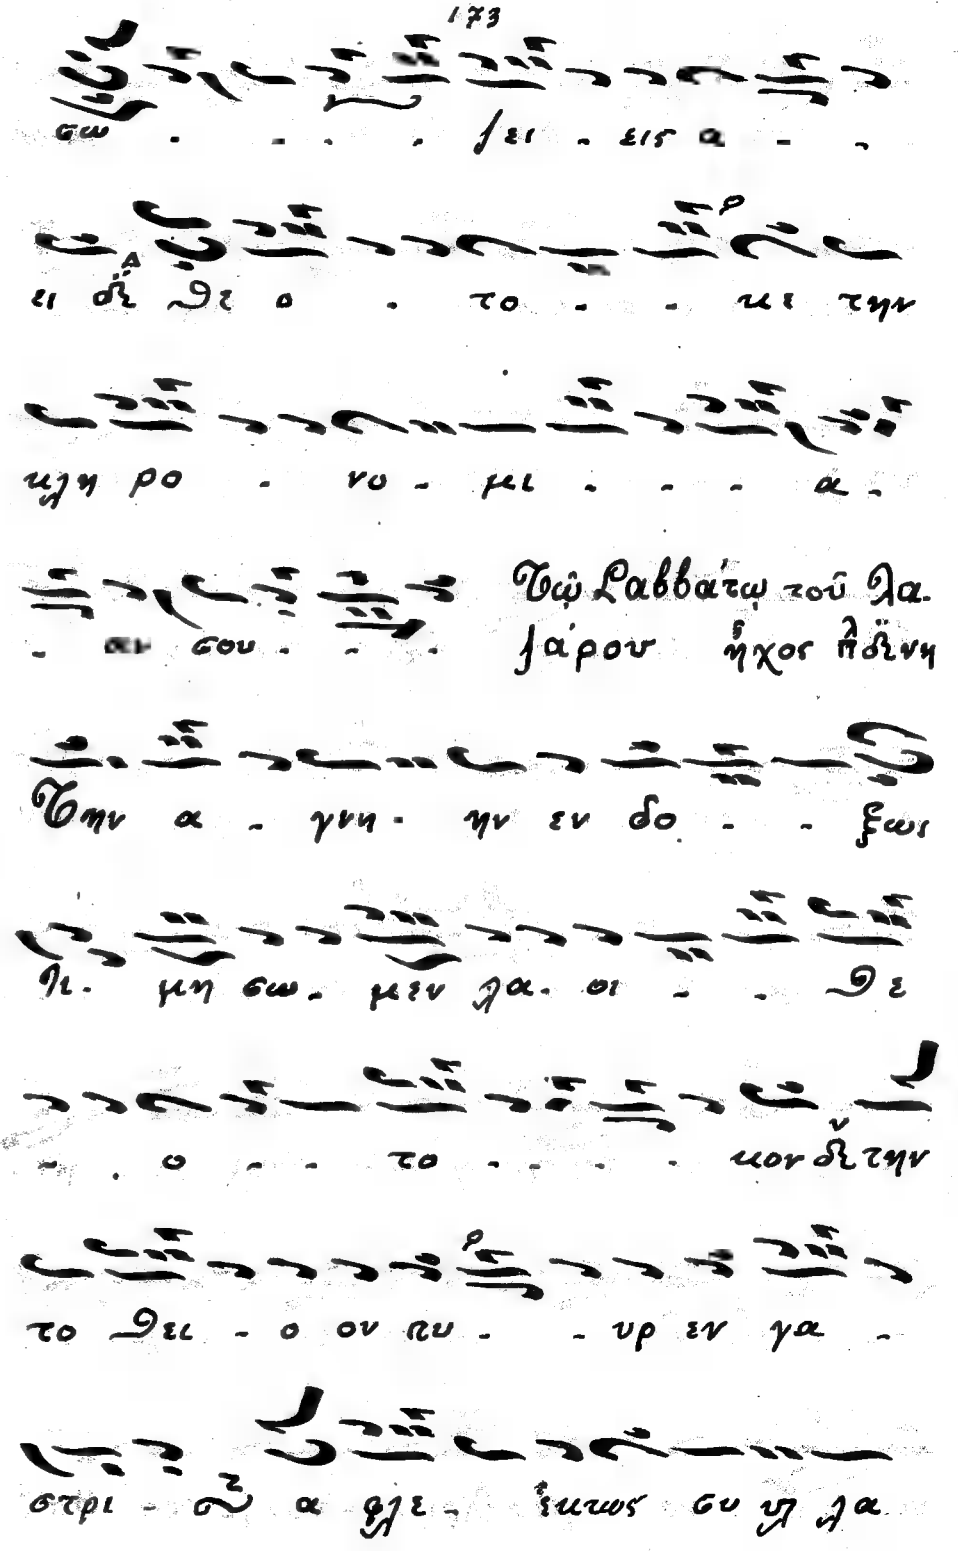 173
σω . - - . ζει - εις α - -
ει Δ θε ο . το - - κε την
κλη ρο - νο - μι - - - α -
- αν σου - - - Τῷ Σαββάτῳ τοῦ Λα-
ζάρου ἦχος πλ δι νη
Την α - γνη - ην εν δο - - ξως
τι - μη σω - μεν λα - οι - - θε
- . ο - - το - - - - κον ν την
το θει - ο ον πυ - - υρ εν γα -
στρι - α φλε - έκτως συ υλ λα